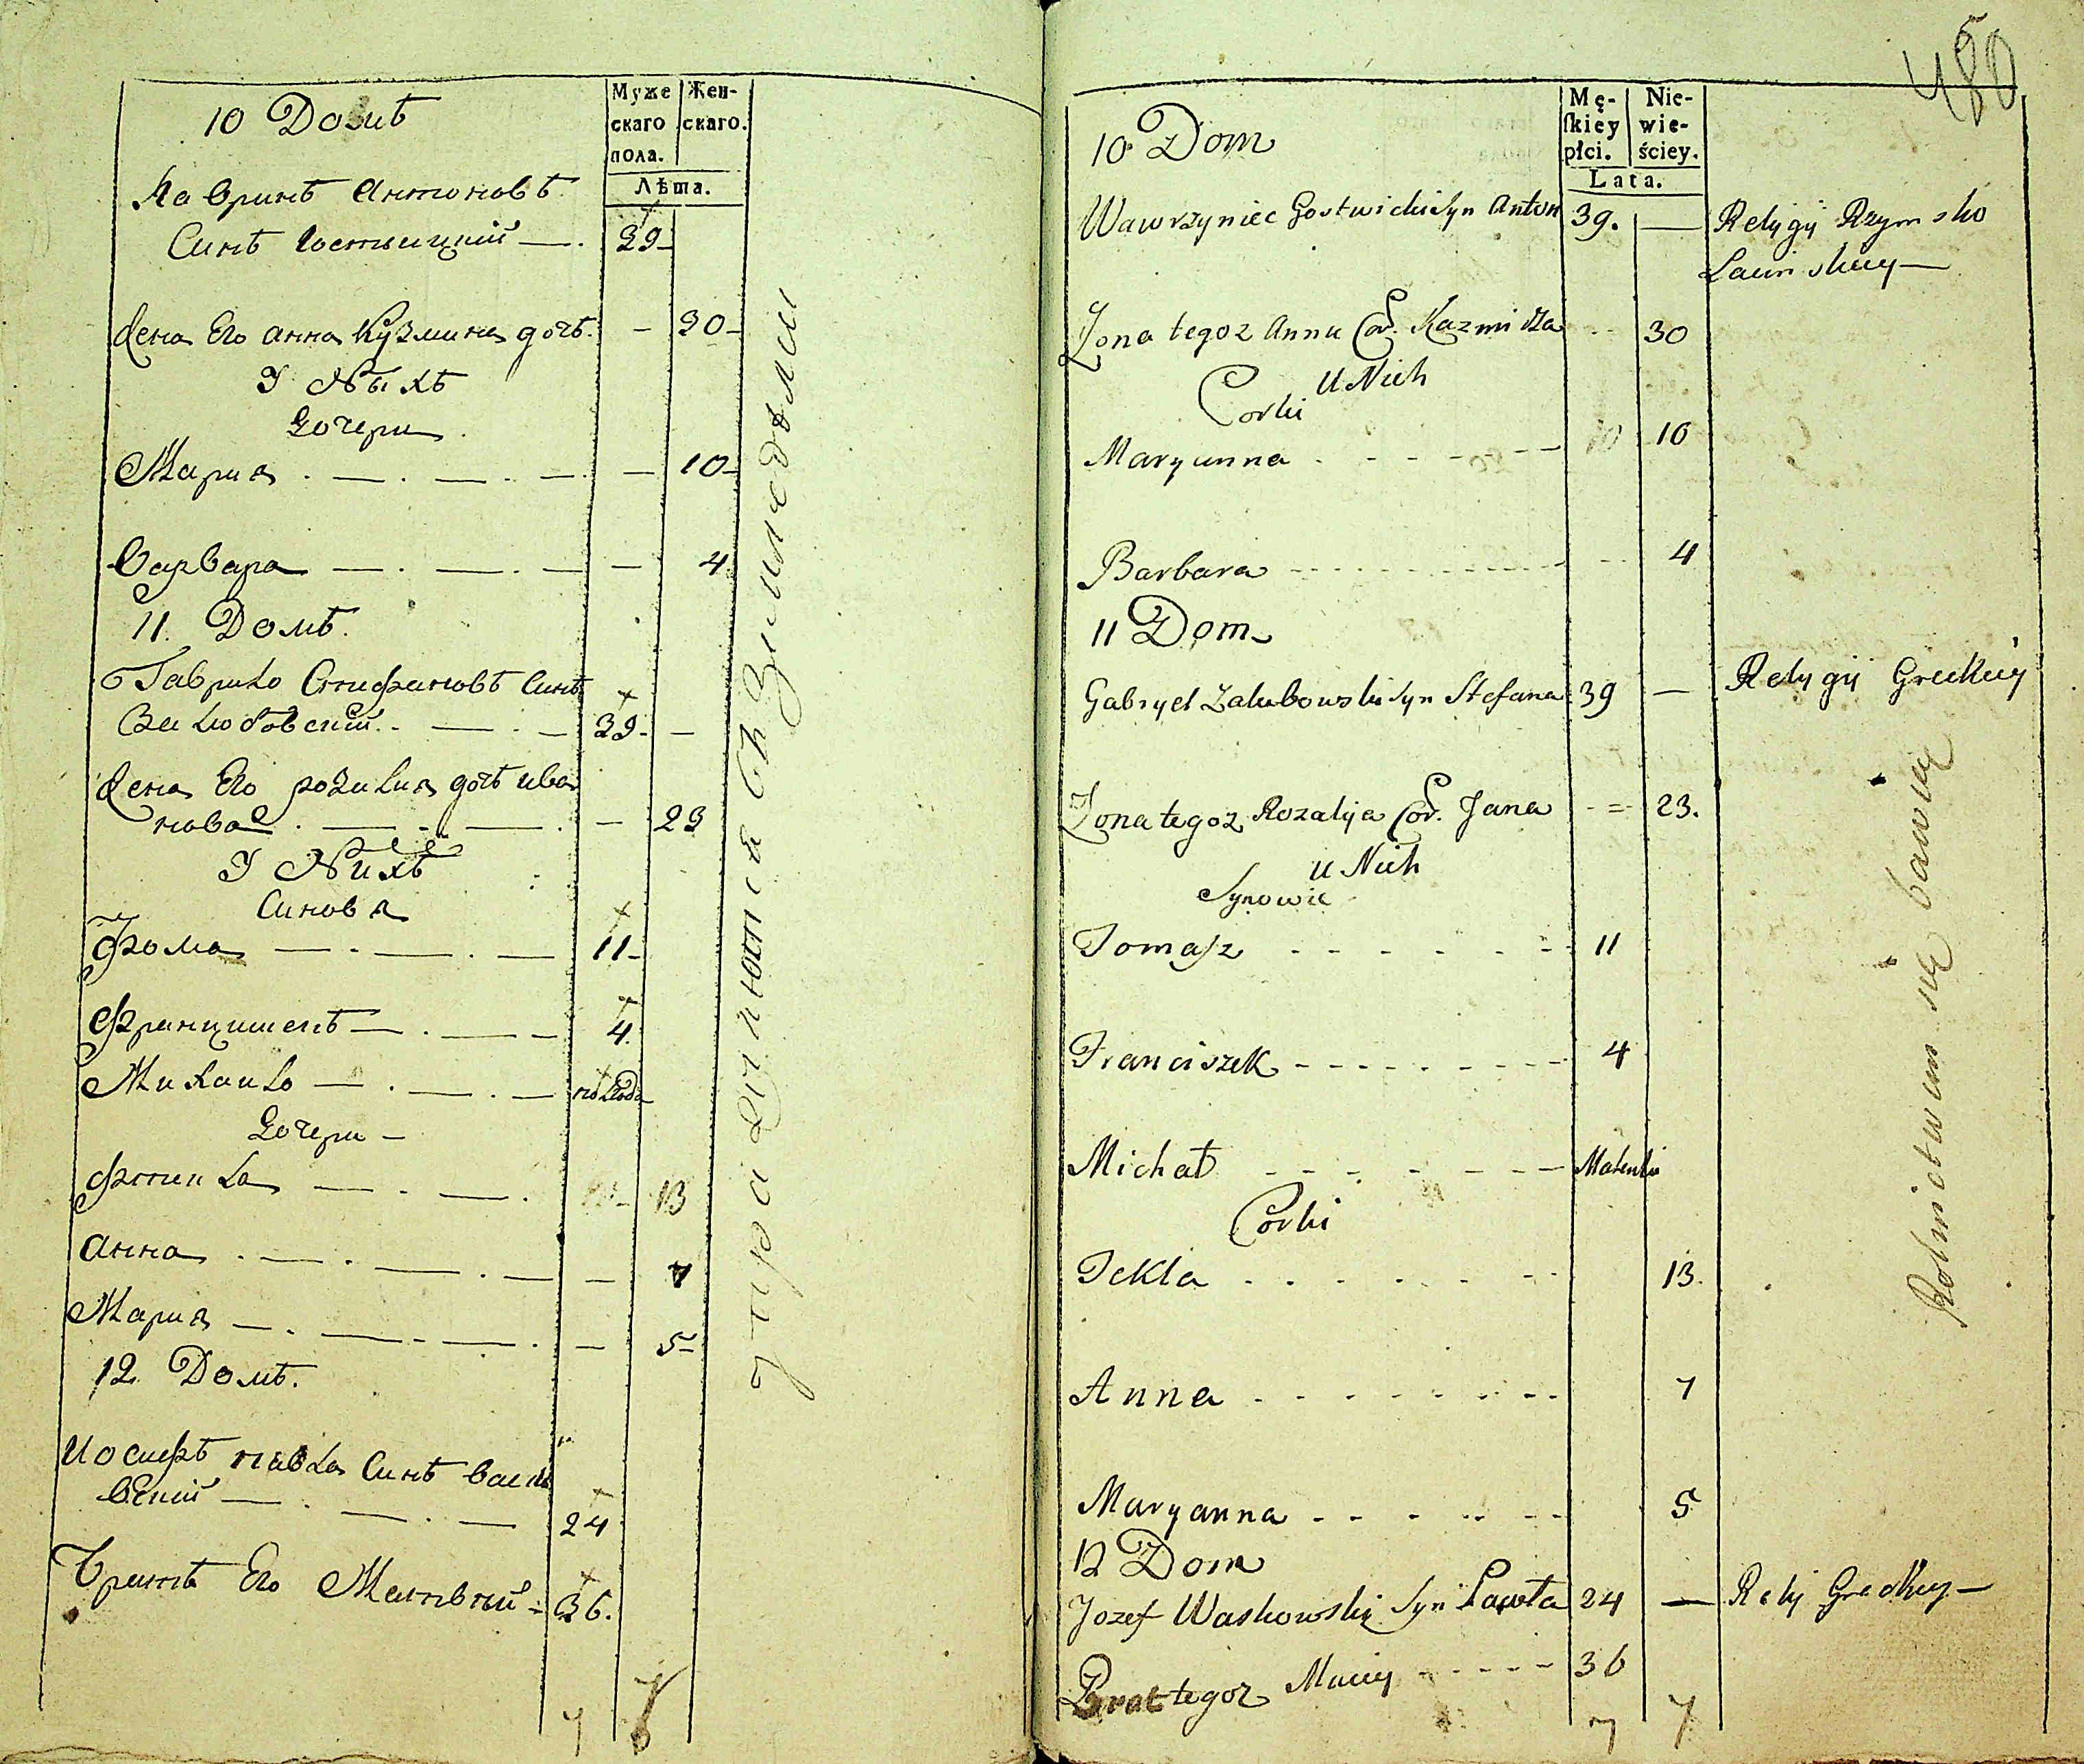 10 Домъ
Муже
скаго
пола.
Жен-
скаго.
Лѣта.
Лавринъ Антоновъ
Синъ Гостыцкий 39
Жена Его Анна Кузмина дочь 30
У Ныхъ
Дочери
Мария 10
Варвара 4
11. Домъ.
Гаврило Стифановъ Синъ
Залюбовский 39
Жена Его розалия дочь ива
нова 23
У Нихъ
Синовя
Фома 11
Францишекъ 4
Михаило
Дочери
Фтекла 13
Анна 7
Мария 5
12 Домъ.
Иосифъ павла Синъ Васьк
вский 24
Братъ Его Матвѣий 36.
7
упражнюются въ Зимледѣлии
480
10 Dom
Mę-
ſkiey
płci.
Nie-
wie-
ściey.
Lata.
Wawrzyniec Gostwicki Syn Anton 39. — Relygij Rzymsko
Lacinskiey
Zona tegoz Anna Cor. Kazmirza 30
U Nich
Corki
Maryanna 10
Barbara 4
11 Dom
Gabryel Zalubowski Syn Stefana 39 — Relygij Greckiey
Zona tegoz Rozalija Cor. Jana 23.
u Nich
Synowie
Tomasz 11
Franciszek 4
Michał Maleńki
Corki
Tekla 13.
Anna 7
Maryanna 5
12 Dom
Jozef Waskowski Syn Pawła 24 — Relij Greckiey
Brat tegoz Maciey 36
7 7
Rolnictwem się bawią